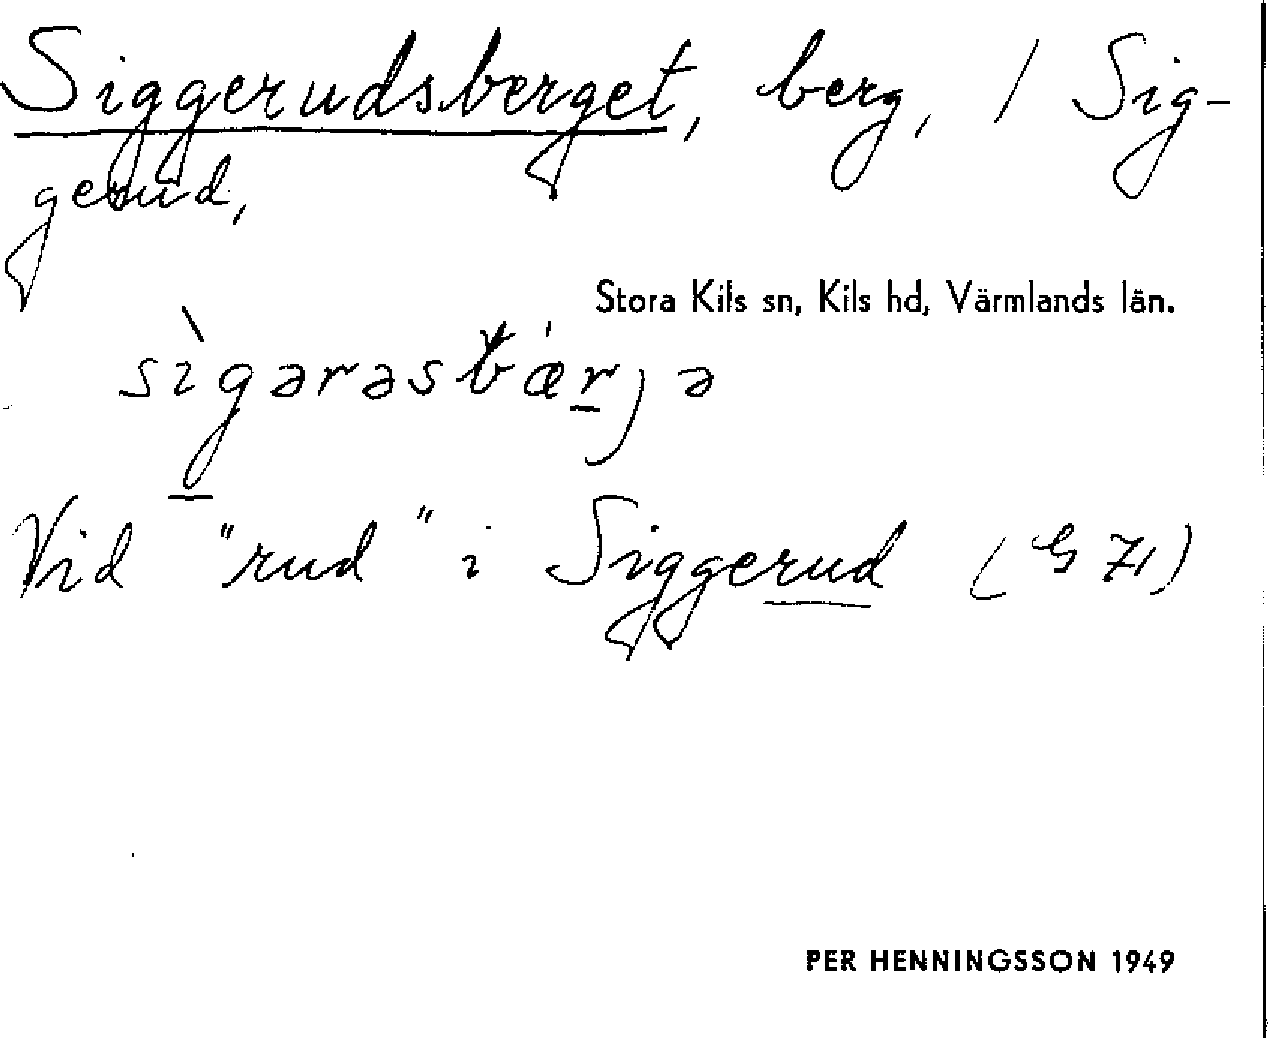 Siggerudsberget, berg, / Sig-
gerud,
Stora Kils sn, Kils hd, Värmlands län.
sìgərəsbǽrjə
Vid "rud" i Siggerud (G 71)
PER HENNINGSSON 1949